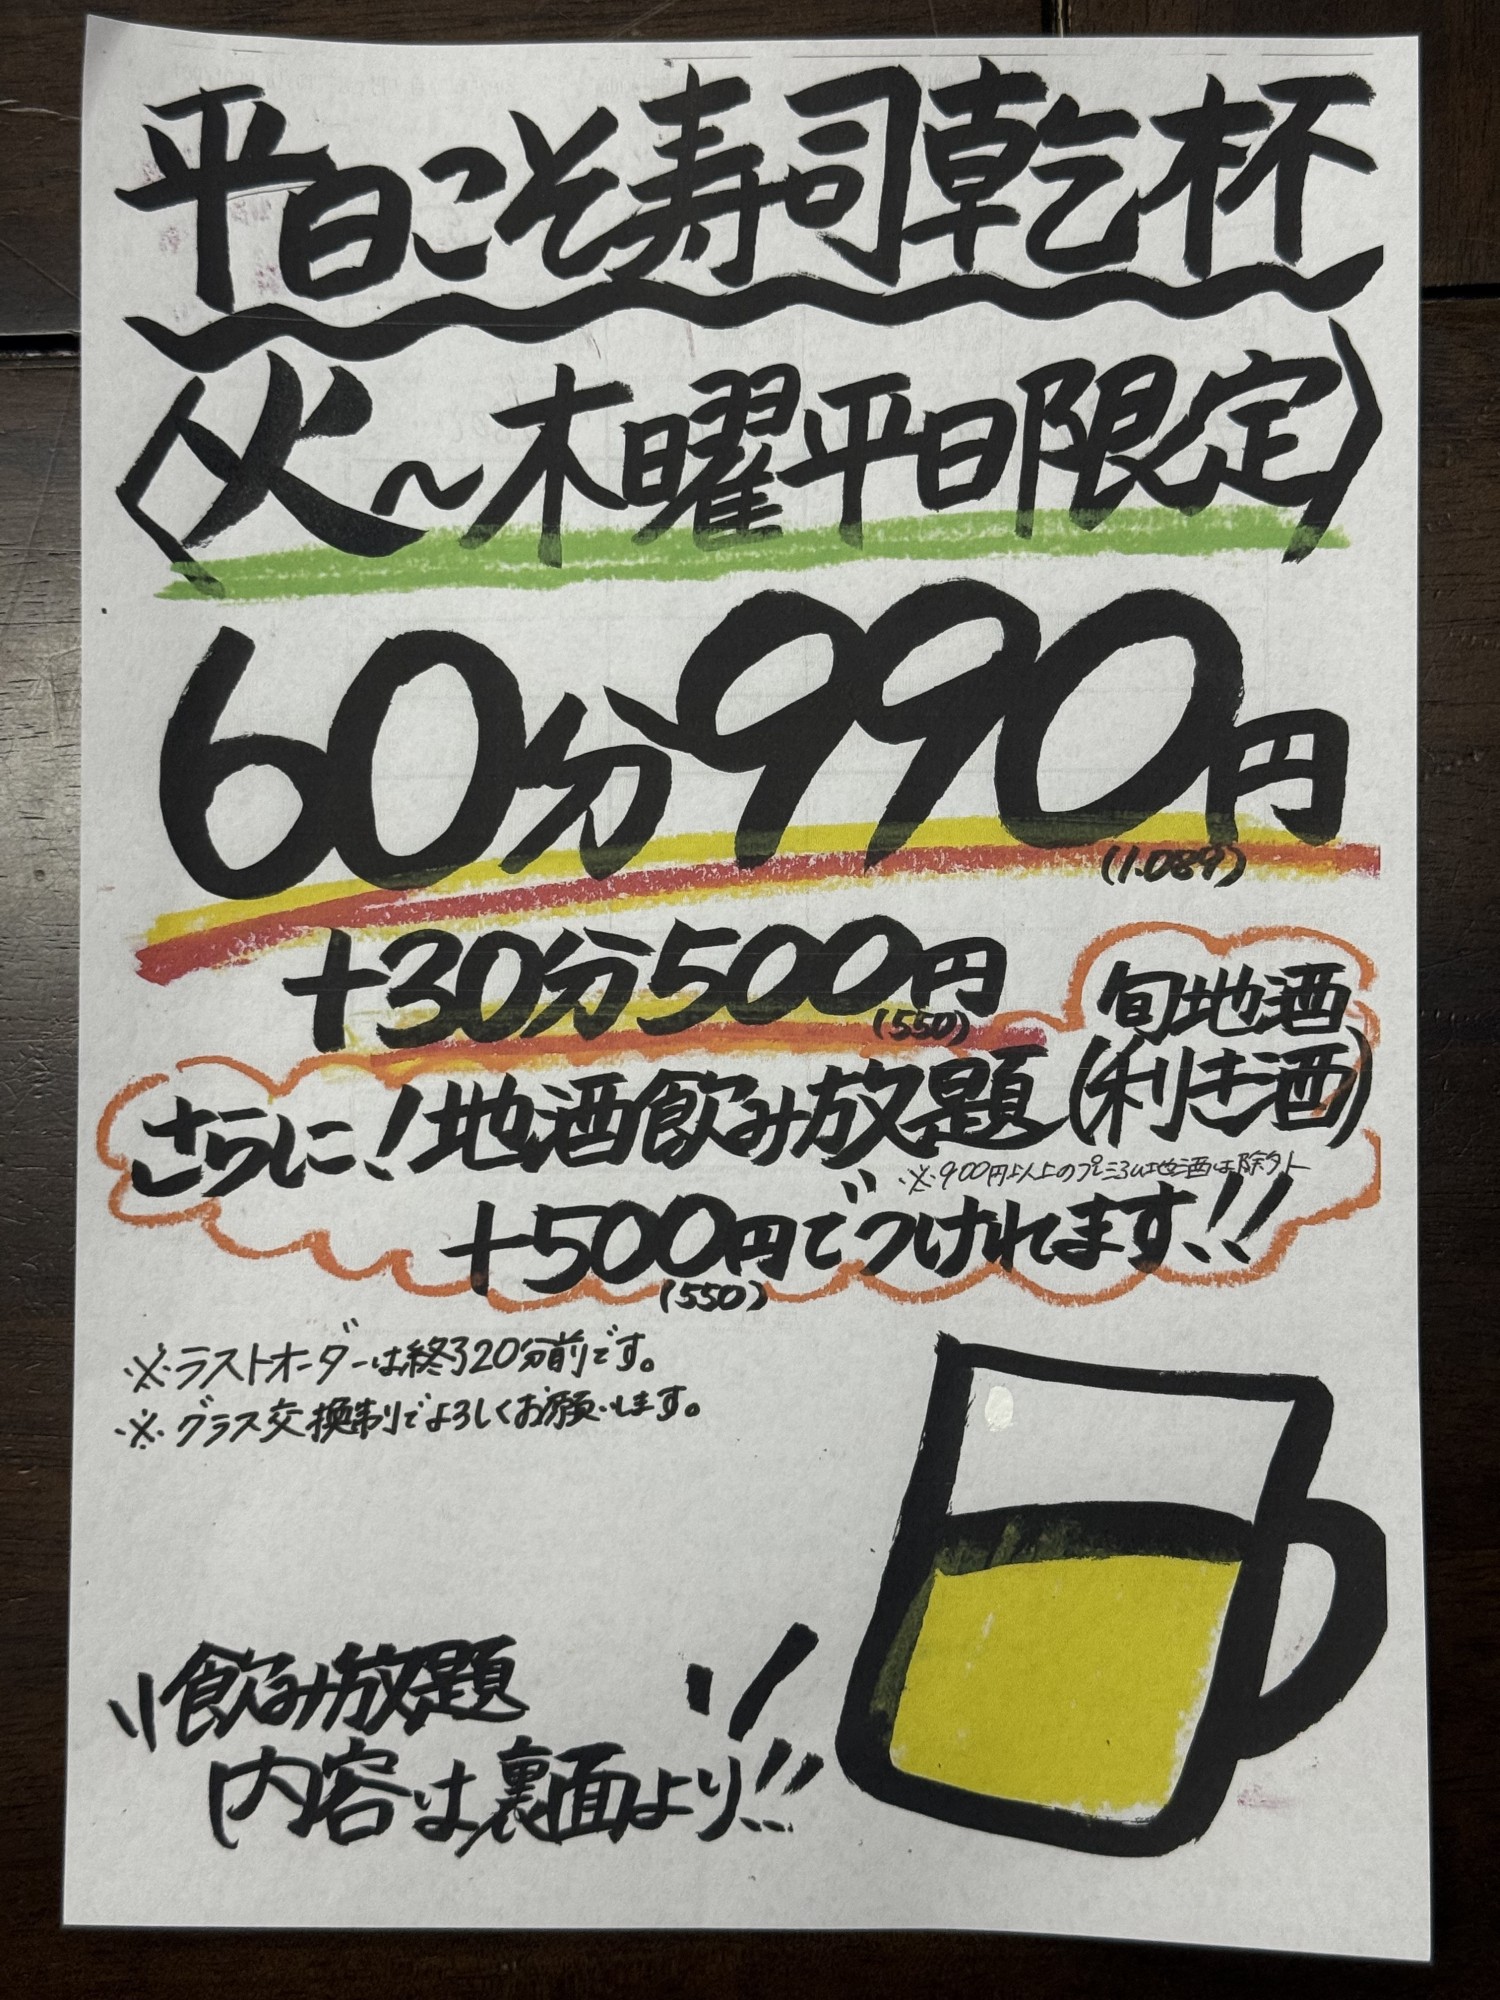 平日こそ寿司乾杯
〈火～木曜平日限定〉
60分990円
(1.089)
+30分500円
(550)
旬地酒
さらに!地酒飲み放題(利き酒)
※900円以上のプレミアム地酒は除外
+500円でつけれます!!
(550)
※ラストオーダーは終了20分前です。
※グラス交換制でよろしくお願いします。
飲み放題
内容は裏面より!!